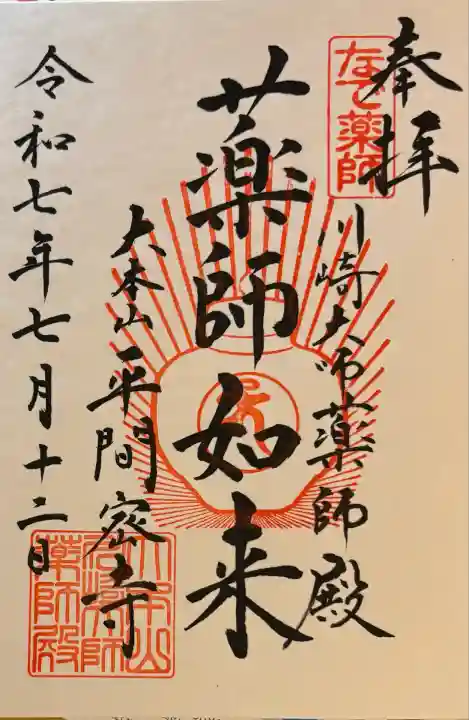 奉拝
なで薬師
川崎大師薬師殿
薬師如来
大本山平間密寺
令和七年七月十二日